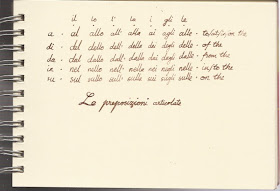 il lo l' la i gli le
a - al allo all' alla ai agli alle - to/at/in/on the
di - del dello dell' della dei degli delle - of the
da - dal dallo dall' dalla dai dagli dalle - from the
in - nel nello nell' nella nei negli nelle - in/to the
su - sul sullo sull' sulla sui sugli sulle - on the
Le preposizioni articolate